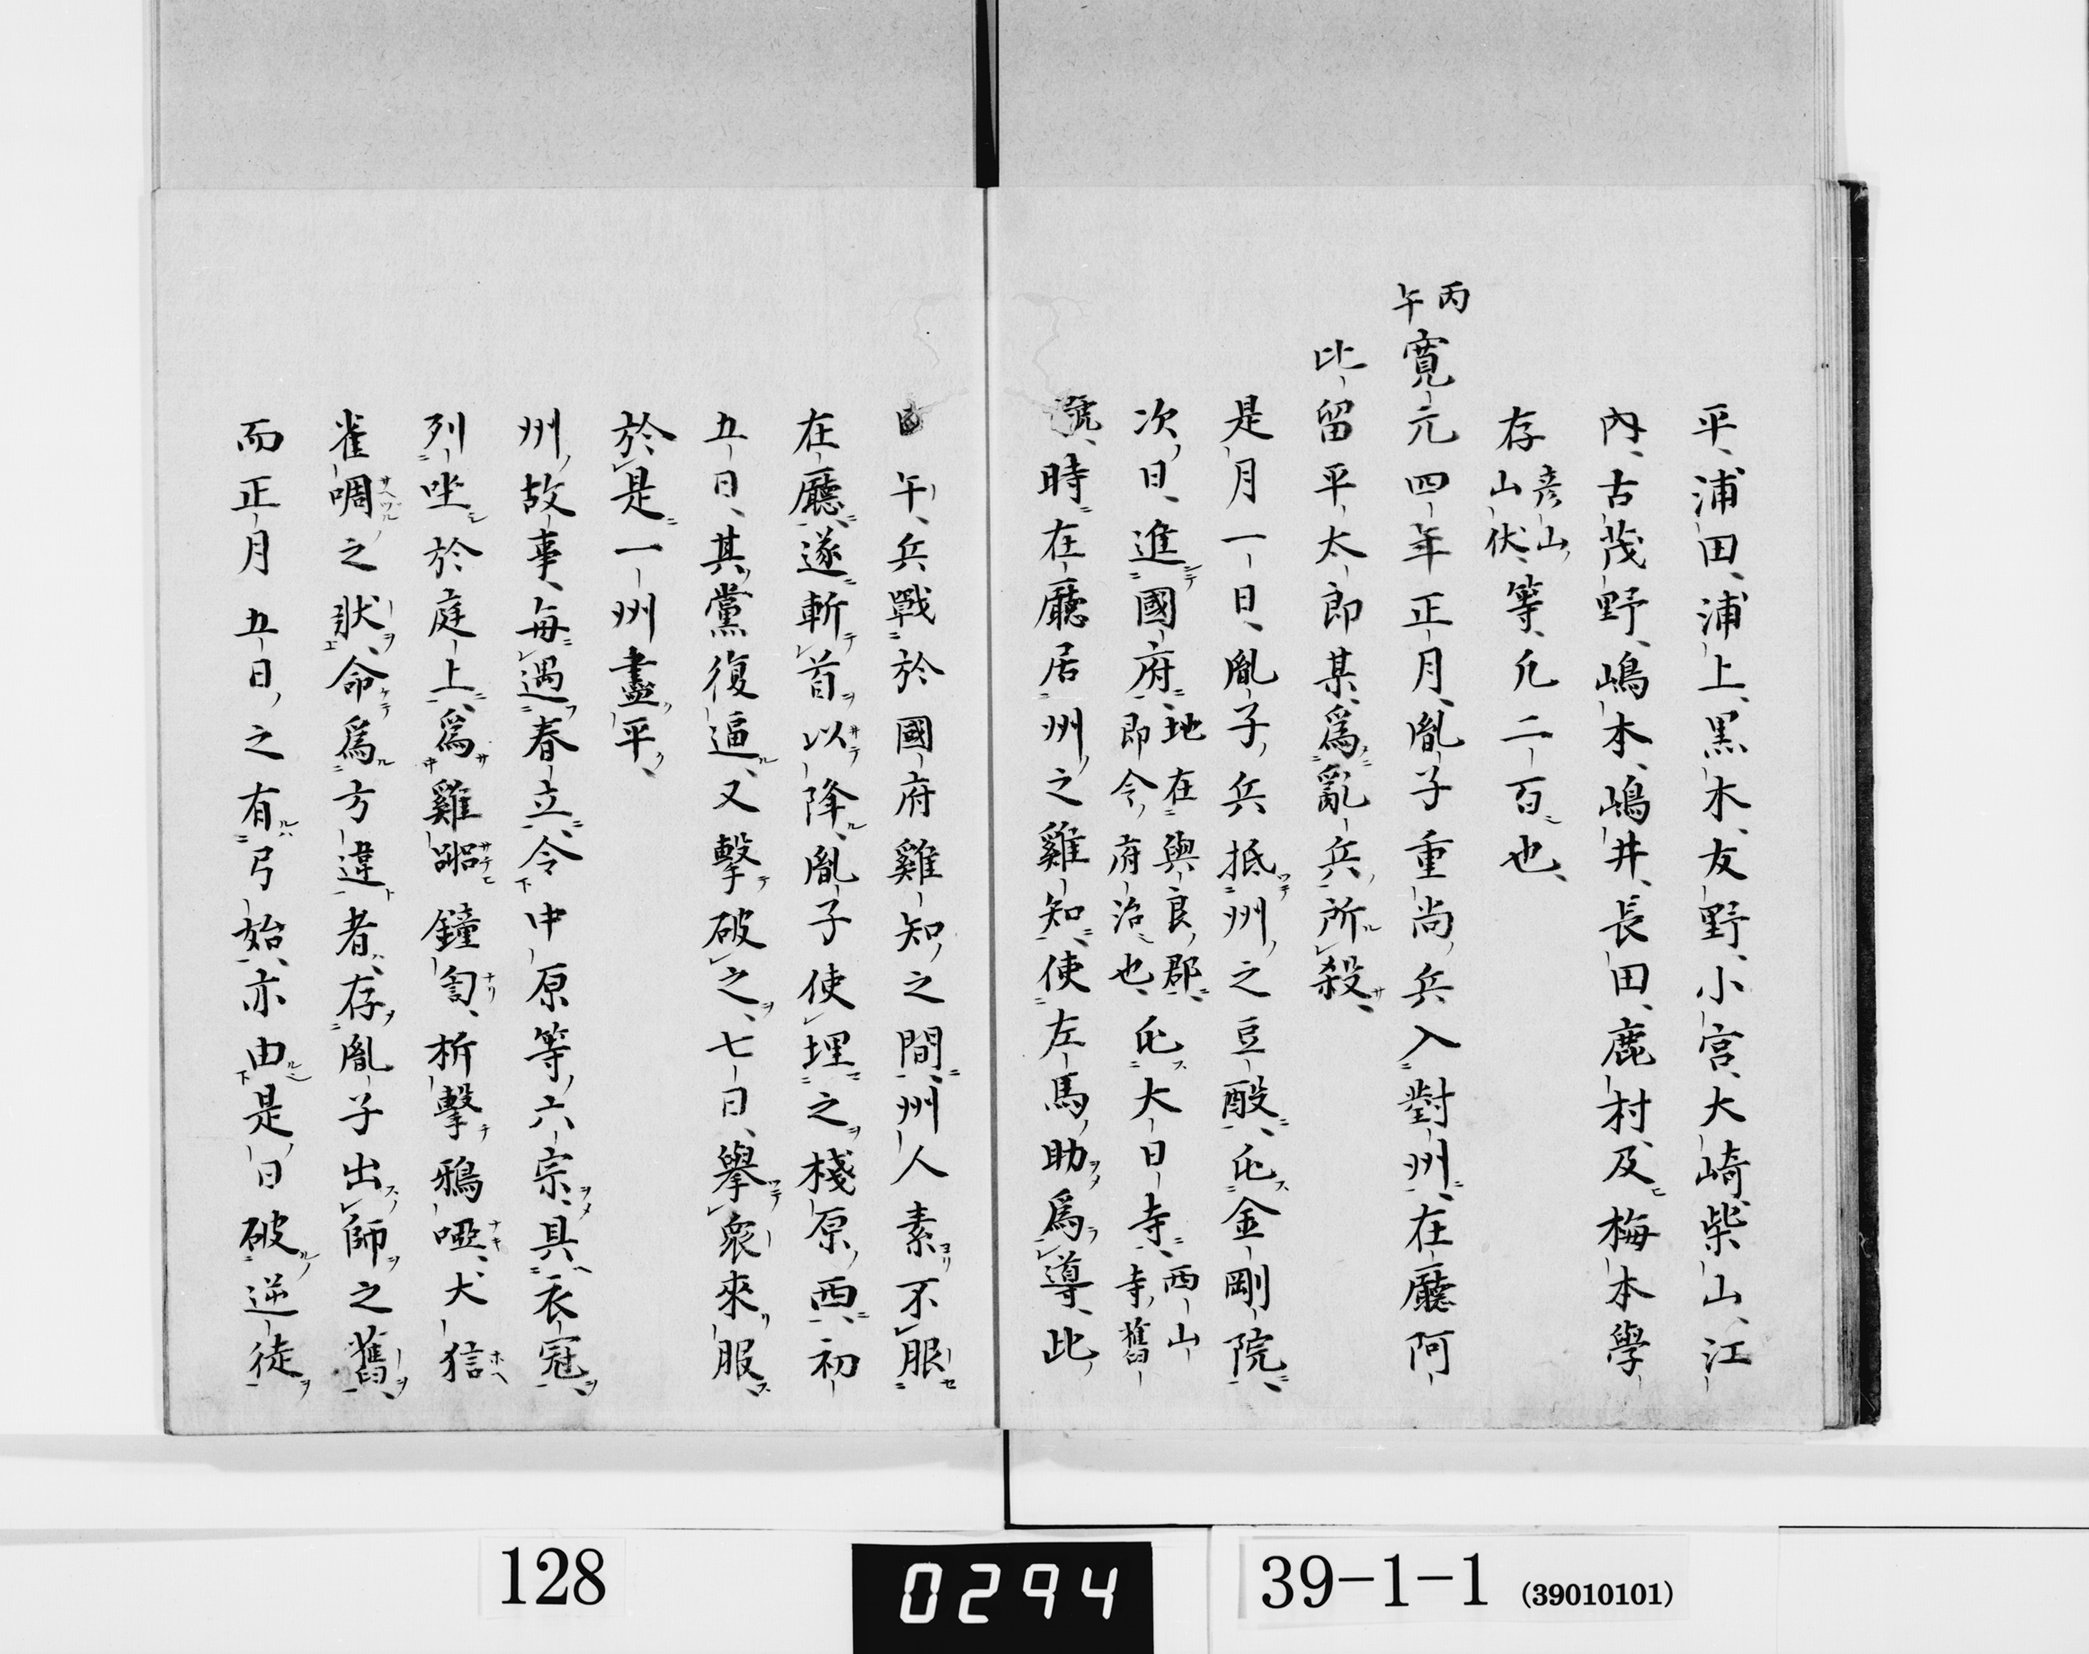 平浦田浦上黒木友野小宮大崎柴山江
內古茂野嶋木嶋井長田鹿村及梅本學
存彦山山伏等凢二百也
丙午寛元四年正月胤子重尚兵入對州在廳阿
比留平太郎某爲亂兵所殺
是月一日胤子兵抵州之豆酘屯金剛院
次日進國府地在與良郡即今府治也屯大日寺西山寺舊
號時在廳居州之雞知使左馬助爲導此
午兵戰於國府雞知之間州人素不服
在廳遂斬首以降胤子使埋之棧原西初
五日其黨復逼又擊破之七日擧衆來服
於是一州盡平
州故事每遇春立令中原等六宗具衣冠
列坐於庭上爲雞鐘匐析擊鴉啞犬狺
雀啁之狀命爲方違者存胤子出師之舊
而正月五日之有弓始亦由是日破逆徒
128
0294
39-1-1 (39010101)